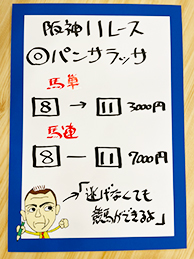 阪神11レース
◎パンサラッサ
馬単
8 → 11 3000円
馬連
8 ー 11 7000円
→「逃げなくても
競馬ができるよ」